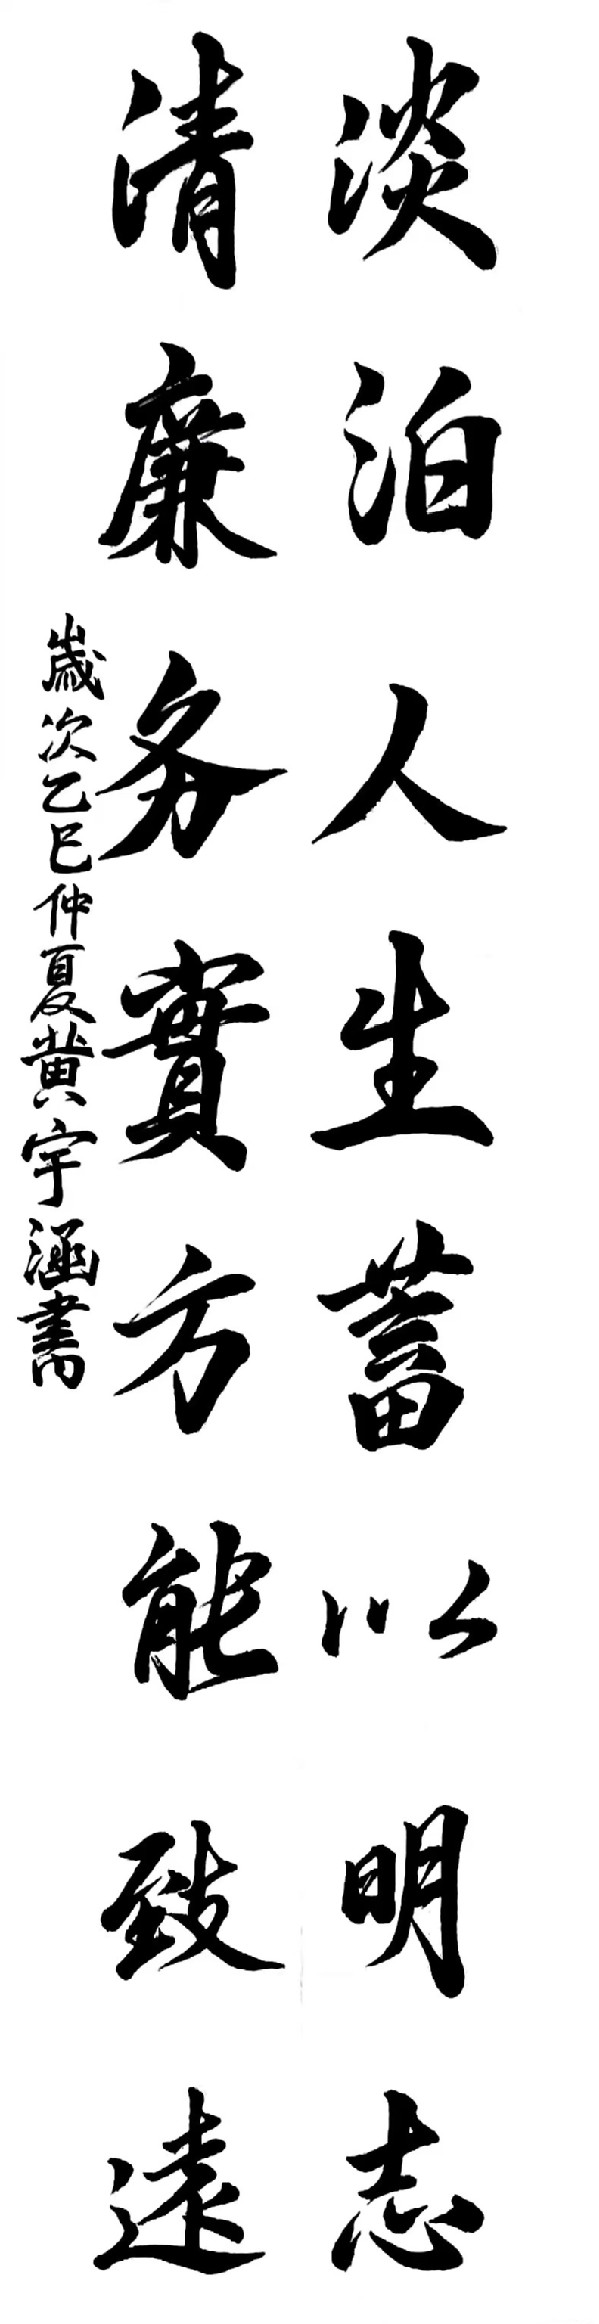 淡泊人生蓄以明志
清廉务實方能致遠
歲次乙巳仲夏黄宇涵書